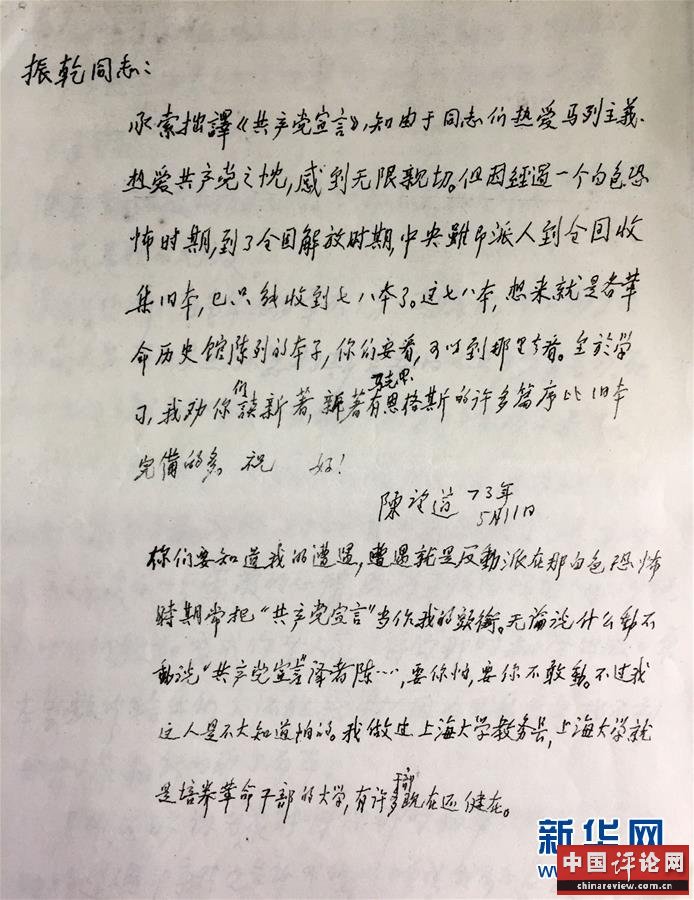 振乾同志：
承索拙譯《共产党宣言》，知由于同志们热爱马列主義、
热爱共产党之忱，感到无限親切。但因經過一个白色恐
怖时期，到了全国解放时期，中央雖币派人到全国收
集旧本，已只能收到七八本了。这七八本，想来就是各革
命历史馆陈列的本子，你们要看，可以到那里去看。至於学
习，我劝你们读新著，新著有馬克思、恩格斯的许多篇序比旧本
完備的多。祝 好！
陳望道 73年
5月11日
你们要知道我的遭遇，遭遇就是反動派在那白色恐怖
時期常把“共产党宣言”当作我的頭衔。无論说什么動不
動说“共产党宣言”譯者陈……，要你怕，要你不敢動。不过我
这人是不大知道怕的。我做过上海大学教务長，上海大学就
是培养革命干部的大学，有许多干部现在还健在。
新华网
中国评论网
chinareview.com.cn